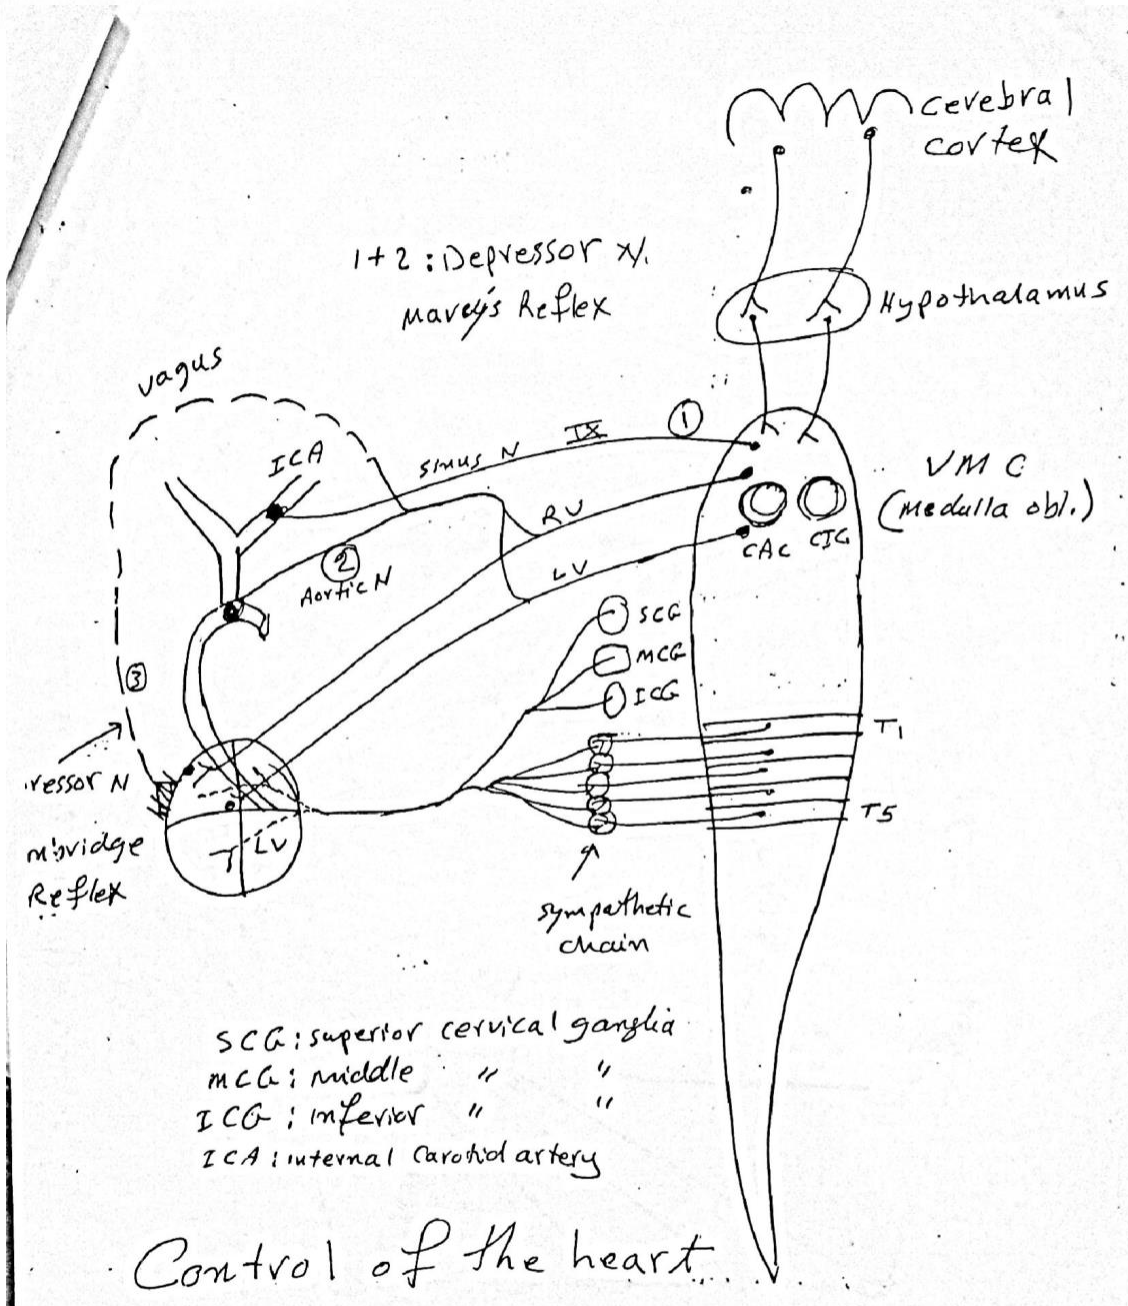 cerebral
cortex
1+2 : Depressor N.
Marey's Reflex
Hypothalamus
vagus
1
IX
sinus N
ICA
VMC
(Medulla obl.)
RV
CAC
CIC
2
Aortic N
LV
SCG
MCG
ICG
3
T1
T5
ressor N
mbridge
Reflex
LV
sympathetic
chain
SCG : superior cervical ganglia
MCG : Middle " "
ICG : inferior " "
ICA : internal carotid artery
Control of the heart